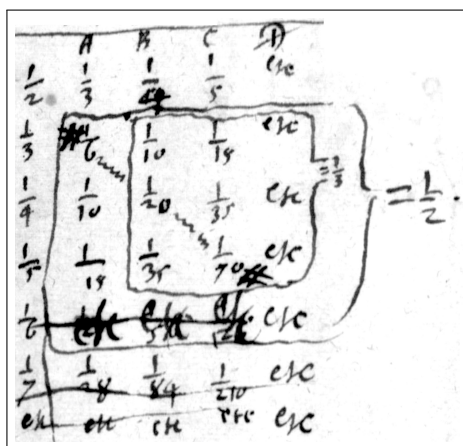 A B C D
1/2 1/3 1/4 1/5 etc
1/3 1/6 1/10 1/15 etc
1/4 1/10 1/20 1/35 etc =1/3 =1/2.
1/5 1/15 1/35 1/70 etc
1/6 etc
1/7 1/28 1/84 1/210 etc
etc etc etc etc etc